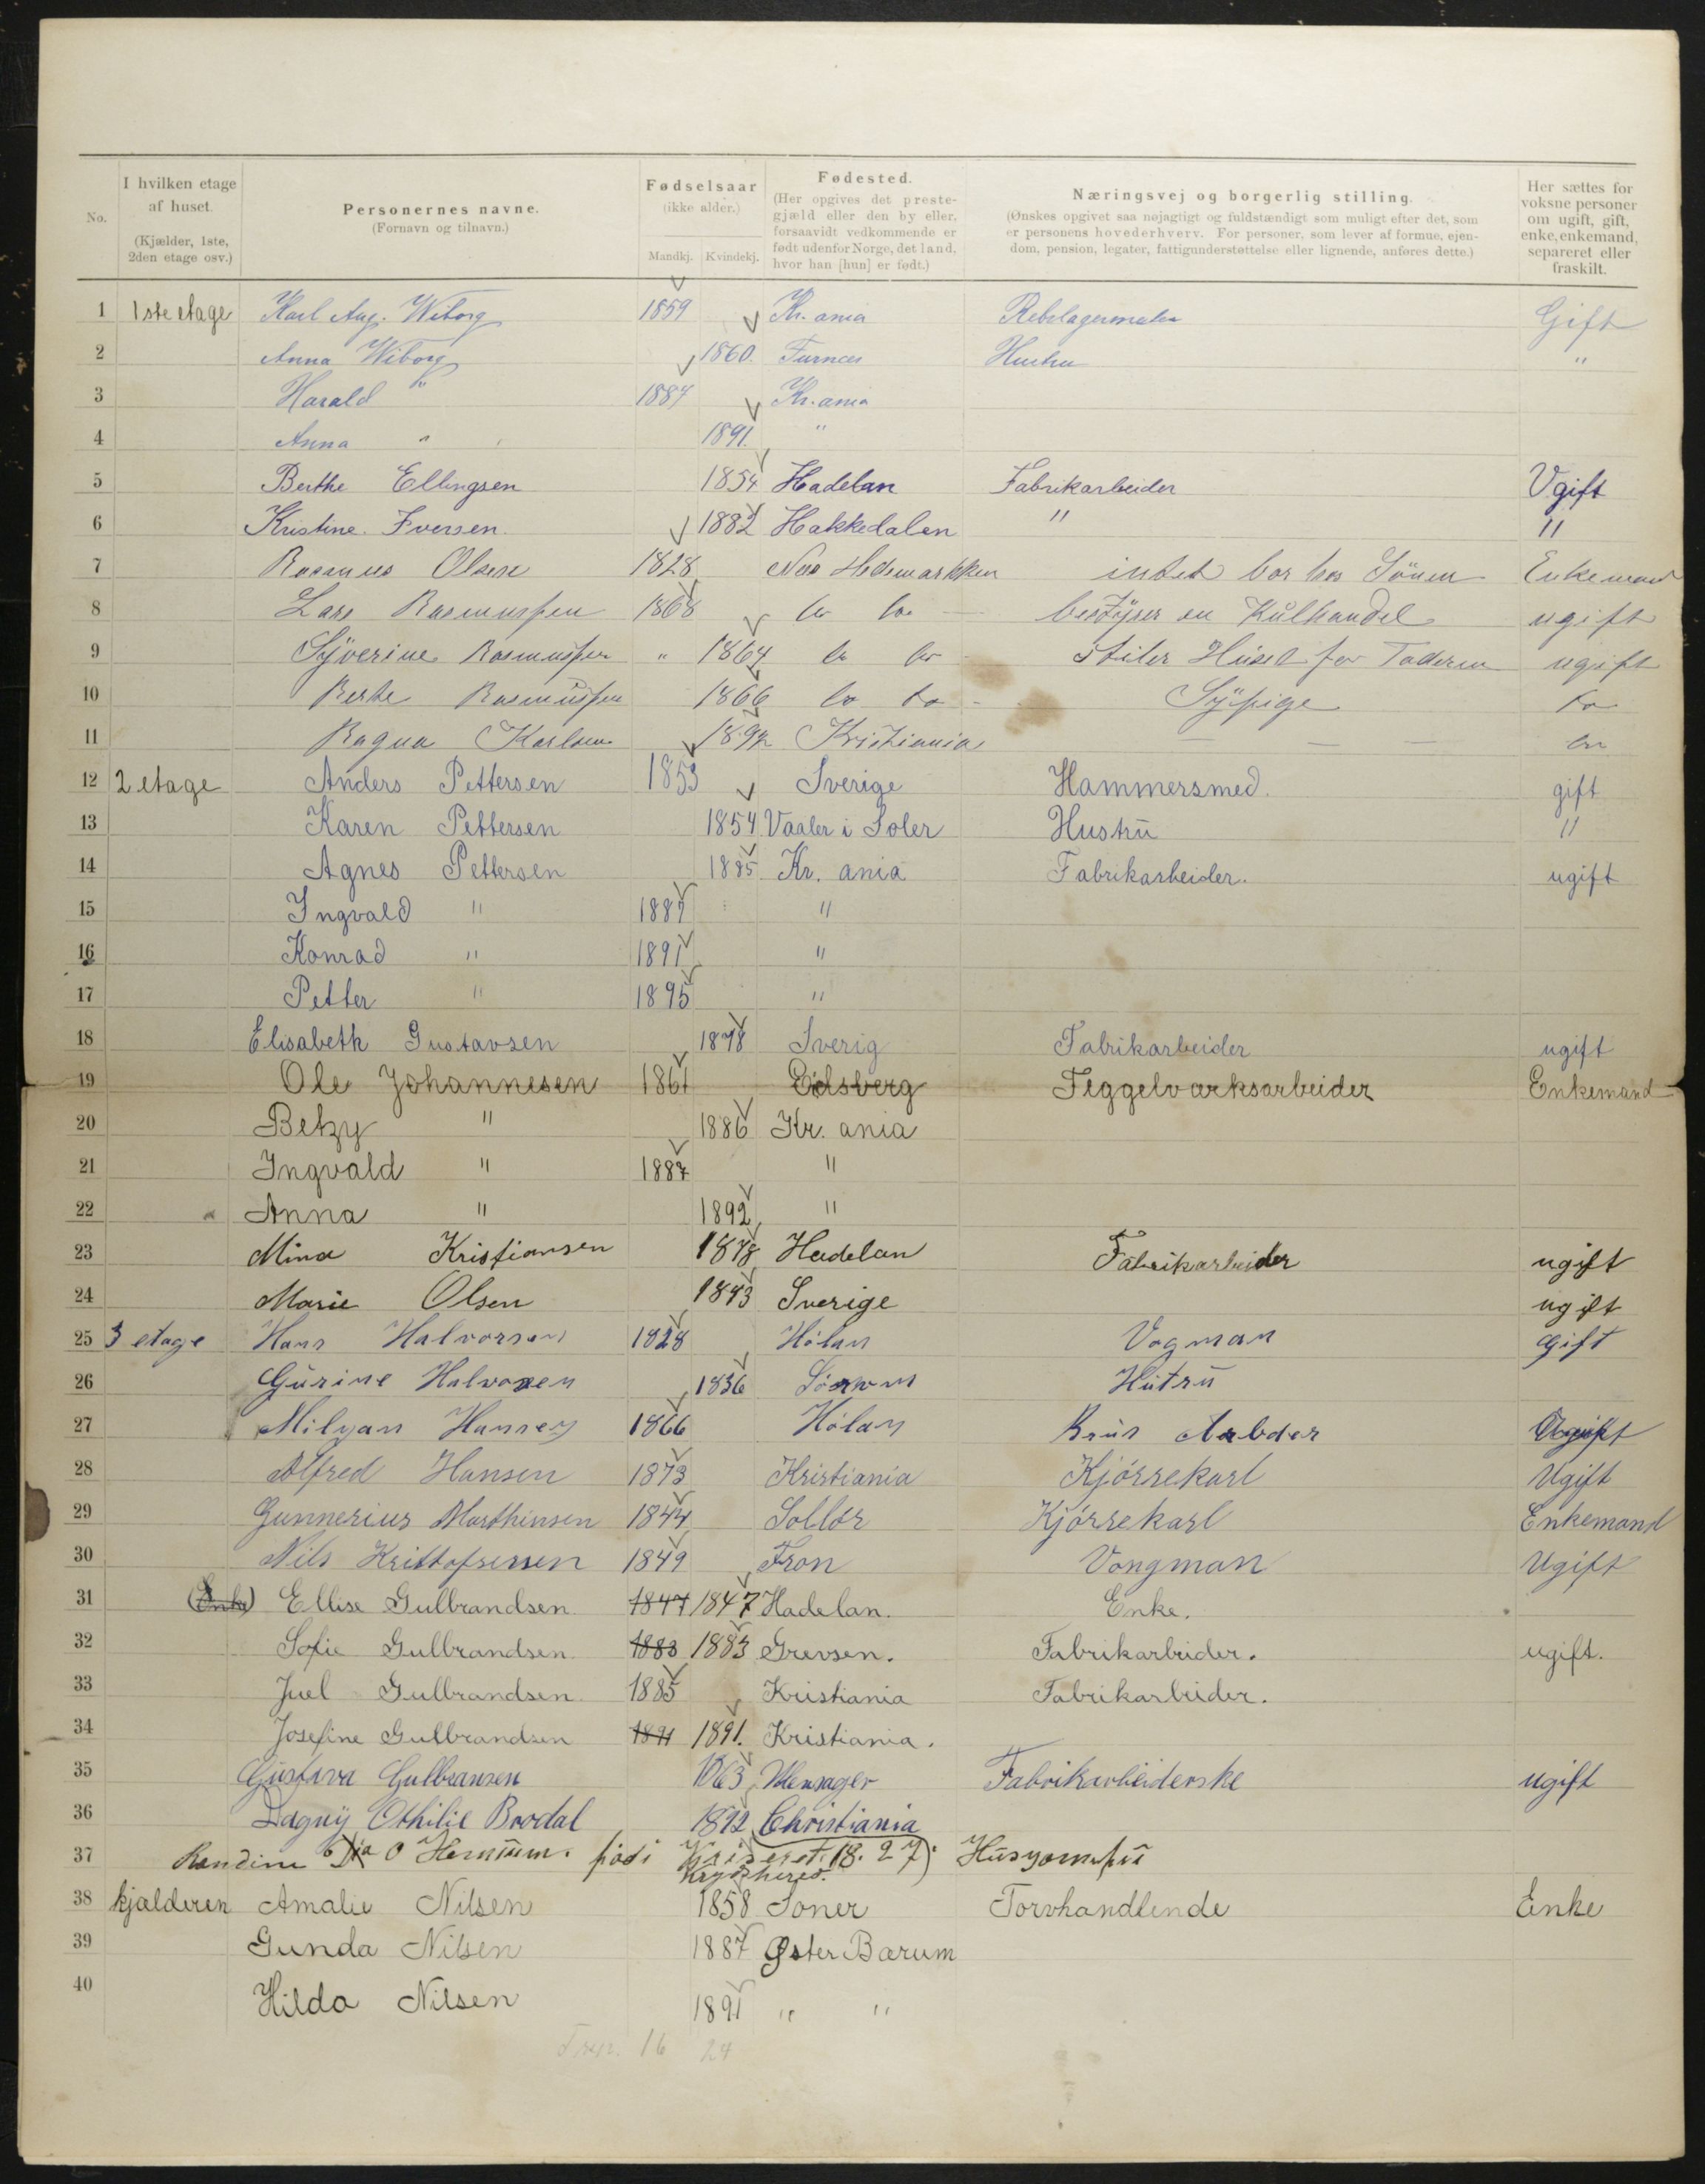 No.
I hvilken etage af huset.
(Kjælder, 1ste, 2den etage osv.)
Personernes navne.
(Fornavn og tilnavn.)
Fødselsaar
(ikke alder.)
Mandkj. Kvindekj.
Fødested.
(Her opgives det preste-
gjæld eller den by eller,
forsaavidt vedkommende er
født udenfor Norge, det land,
hvor han [hun] er født.)
Næringsvej og borgerlig stilling.
(Ønskes opgivet saa nøjagtigt og fuldstændigt som muligt efter det, som
er personens hovederhverv. For personer, som lever af formue, ejen-
dom, pension, legater, fattigunderstøttelse eller lignende, anføres dette.)
Her sættes for
voksne personer
om ugift, gift,
enke, enkemand,
separeret eller
fraskilt.
1 1ste etage Karl Aug. Wiborg 1859 Kr. ania Gift
2 Anna Wiborg 1860. Furnes Hustru "
3 Harald " 1884 Kr. ania
4 Anna " 1891. "
5 Berthe Ellingsen 1854 Hadelan Fabrikarbeider Ugift
6 Kristine. Iversen. 1882 Hakkedalen " "
7 Rasmus Olsen 1828 Hedemarkken intet bor hos Sönen Enkemand
8 Lars Rasmussen 1868 do do bestÿrer en Kulhandel ugift
9 Sÿverine Rasmussen " 1864 do do Stiler Huset for Faderen ugift
10 Berte Rasmussen 1866 do do Sÿpige do
11 Ragna Karlsen 1892 Kristiania
12 2 etage Anders Pettersen 1853 Sverige Hammersmed. gift
13 Karen Pettersen 1854 Vaaler i Soler Hustru "
14 Agnes Pettersen 1885 Kr. ania Fabrikarbeider. ugift
15 Ingvald " 1887 "
16 Konrad " 1891 "
17 Petter " 1895 "
18 Elisabeth Gustavsen 1878 Sverig Fabrikarbeider ugift
19 Ole Johannesen 1861 Eidsberg Teggelværksarbeider Enkemand
20 Betzy " 1886 Kr. ania
21 Ingvald " 1887 "
22 Anna " 1892 "
23 Mina Kristiansen 1878 Hadelan Fabrikarbeider ugift
24 Marie Olsen 1843 Sverige ugift
25 3 etage Hans Halvorsen 1828 Hölan Vogman gift
26 Gurine Halvorsen 1836 Hutru
27 Milyan Hansen 1866 Hölan Brus Ugift
28 Alfred Hansen 1873 Kristiania Kjörrekarl Ugift
29 Gunnerius Marthinsen 1844 Sollör Kjörrekarl Enkemand
30 Nils Kristofsersen 1849 Fron Vongman Ugift
31 (Enke) Ellise Gulbrandsen. 1847 1847 Hadelan. Enke.
32 Sofie Gulbrandsen. 1883 1883 Grevsen. Fabrikarbeider. ugift.
33 Juel Gulbrandsen. 1885 Kristiania Fabrikarbeider.
34 Josefine Gulbrandsen 1891 1891. Kristiania.
35 Gustava Gulbransen 1863 Ulensager Fabrikarbeiderske ugift
36 Dagnÿ Othilie Brodal 1892 Christiania
37 Randine födi 18.27)
38 kjælderen Amalie Nilsen 1858 Soner Torvhandlende Enke
39 Gunda Nilsen 1887 Øster Bærum
40 Hilda Nilsen 1891 " "
16 24